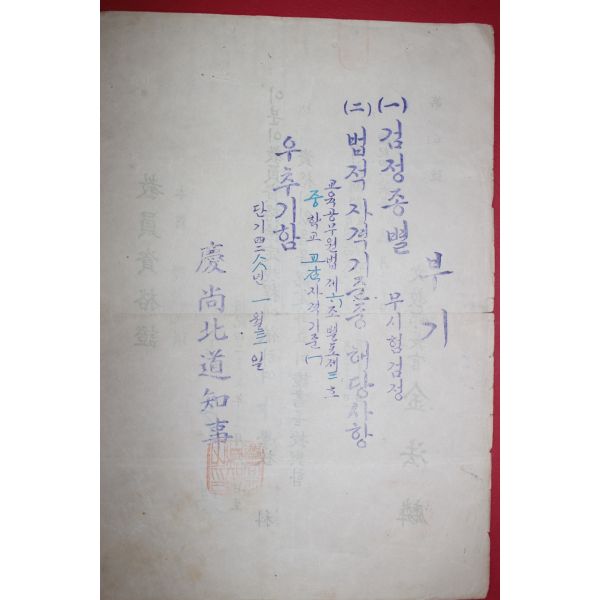 부기
(一) 검정종별 무시험검정
(二) 법적자격기준중 해당사항
교육공무원법 제六조 별표제二호
중학교 교장 자격기준
우추기함
단기四二八八년 一월 일
慶尚北道知事